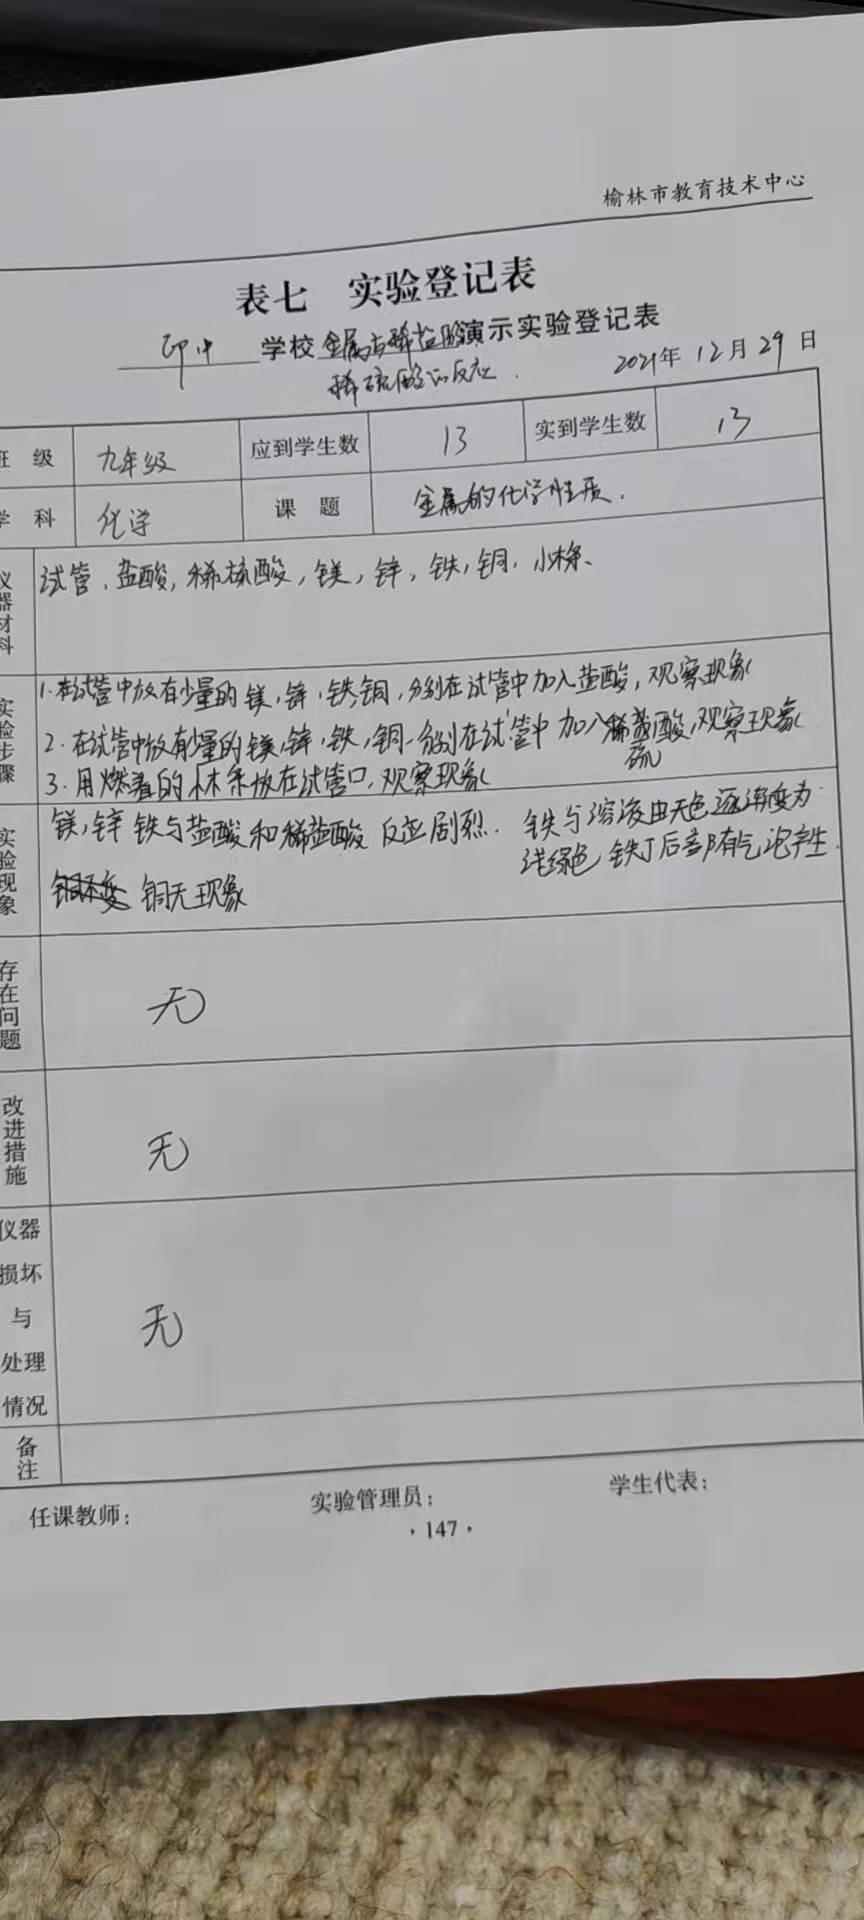 榆林市教育技术中心
表七 实验登记表
印中 学校 金属与稀盐酸 演示实验登记表
稀硫酸的反应. 2021年 12月 29日
班 级 九年级 应到学生数 13 实到学生数 13
学 科 化学 课 题 金属的化学性质.
仪器材料 试管、盐酸,稀硫酸,镁,锌,铁,铜,小木条、
实验步骤 1.在试管中放有少量的镁,锌,铁,铜,分别在试管中加入盐酸,观察现象
2.在试管中放有少量的镁,锌,铁,铜.分别在试管中加入稀硫酸,观察现象
3.用燃着的小木条放在试管口,观察现象
实验现象 镁,锌 铁与盐酸和稀盐酸 反应剧烈. 铁与溶液由无色逐渐变为
浅绿色 铁丁后部有气泡产生.
铜不变 铜无现象
存在问题 无
改进措施 无
仪器
损坏
与 无
处理
情况
备注
任课教师: 实验管理员: 学生代表:
·147·